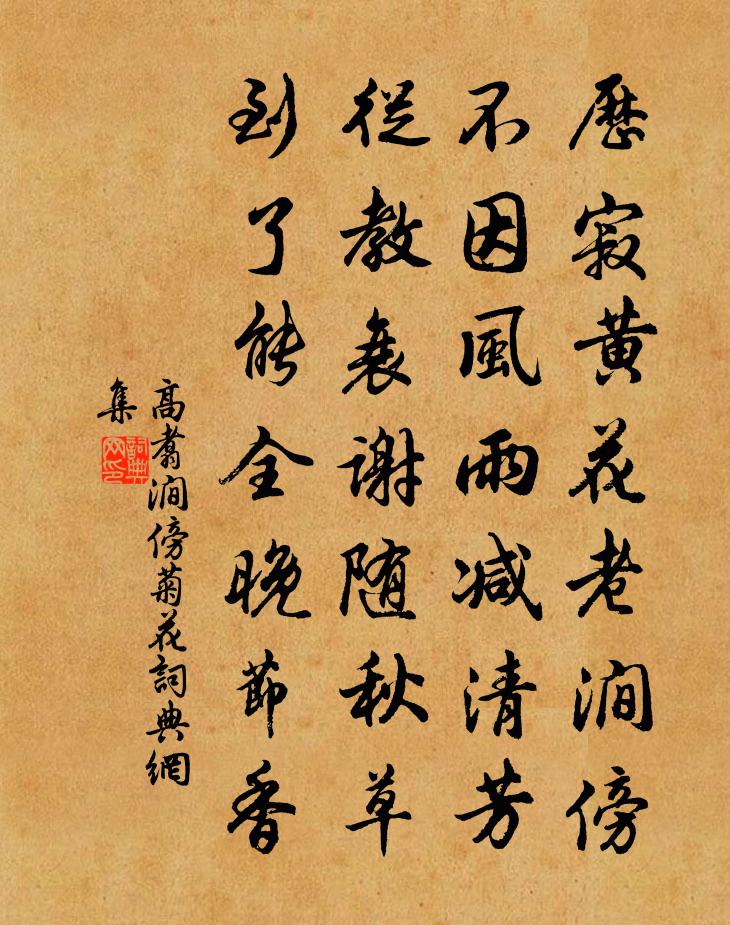 歷寂黃花老澗傍
不因風雨減清芳
從教衰謝随秋草
到了能全晚節香
高翥澗傍菊花詞典網
集
詞典网印